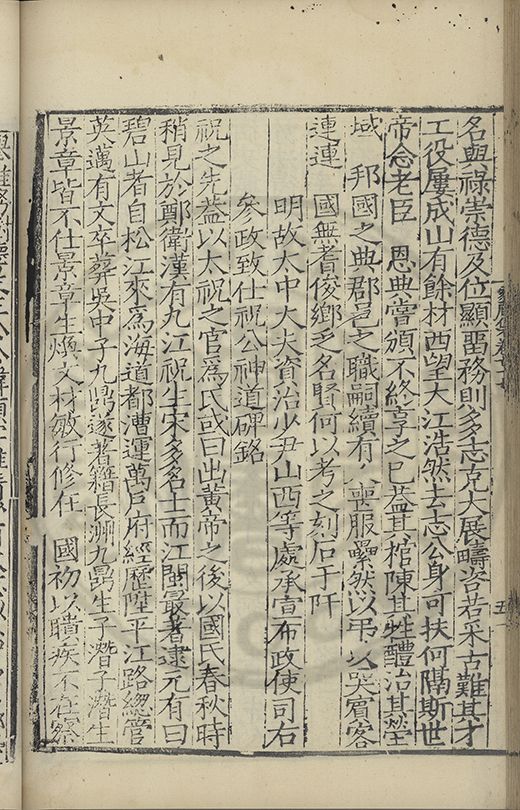 名與祿崇德及位顯罜務則多志克大展疇咨若采古難其才
工役屢成山有餘材西望大江浩然去志公身可扶何隔斯世
帝念老臣 恩典嘗頒不終享之巳葢其棺陳其牲醴治其塋
域 邦國之典郡邑之職嗣續有人喪服纍然以弔以哭賓客
連連 國無耆俊鄉乏名賢何以考之刻石于阡
明故太中大夫資治少尹山西等處承宣布政使司右
參政致仕祝公神道碑銘
祝之先葢以太祝之官爲氏或曰出黃帝之後以國氏春秋時
稍見於鄭衛漢有九江祝生宋多名士而江閩最著逮元有曰
碧山者自松江來爲海道都漕運萬戶府經歷陞平江路總管
英邁有文卒葬吳中子九鼎遂著籍長洲九鼎生子潛子潛生
景章皆不仕景章生煥文材敏行修任 國初以聵疾不在察